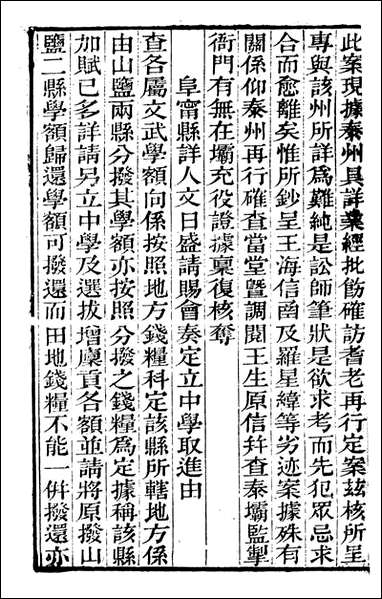 此案現據泰州具詳業經批飭確訪耆老再行定案茲核所呈
專與該州所詳爲難純是訟師筆狀是欲求考而先犯眾忌求
合而愈離矣惟所鈔呈王海信函及羅星緯等劣迹案據殊有
關係仰泰州再行確查當堂暨調閱王生原信幷查泰壩監掣
衙門有無在壩充役證據稟復核奪
阜甯縣詳人文日盛請賜會奏定立中學取進由
查各屬文武學額向係按照地方錢糧科定該縣所轄地方係
由山鹽兩縣分撥其學額亦按照分撥之錢糧爲定據稱該縣
加賦已多詳請另立中學及選拔增廩貢各額並請將原撥山
鹽二縣學額歸還學額可撥還而田地錢糧不能一併撥還亦